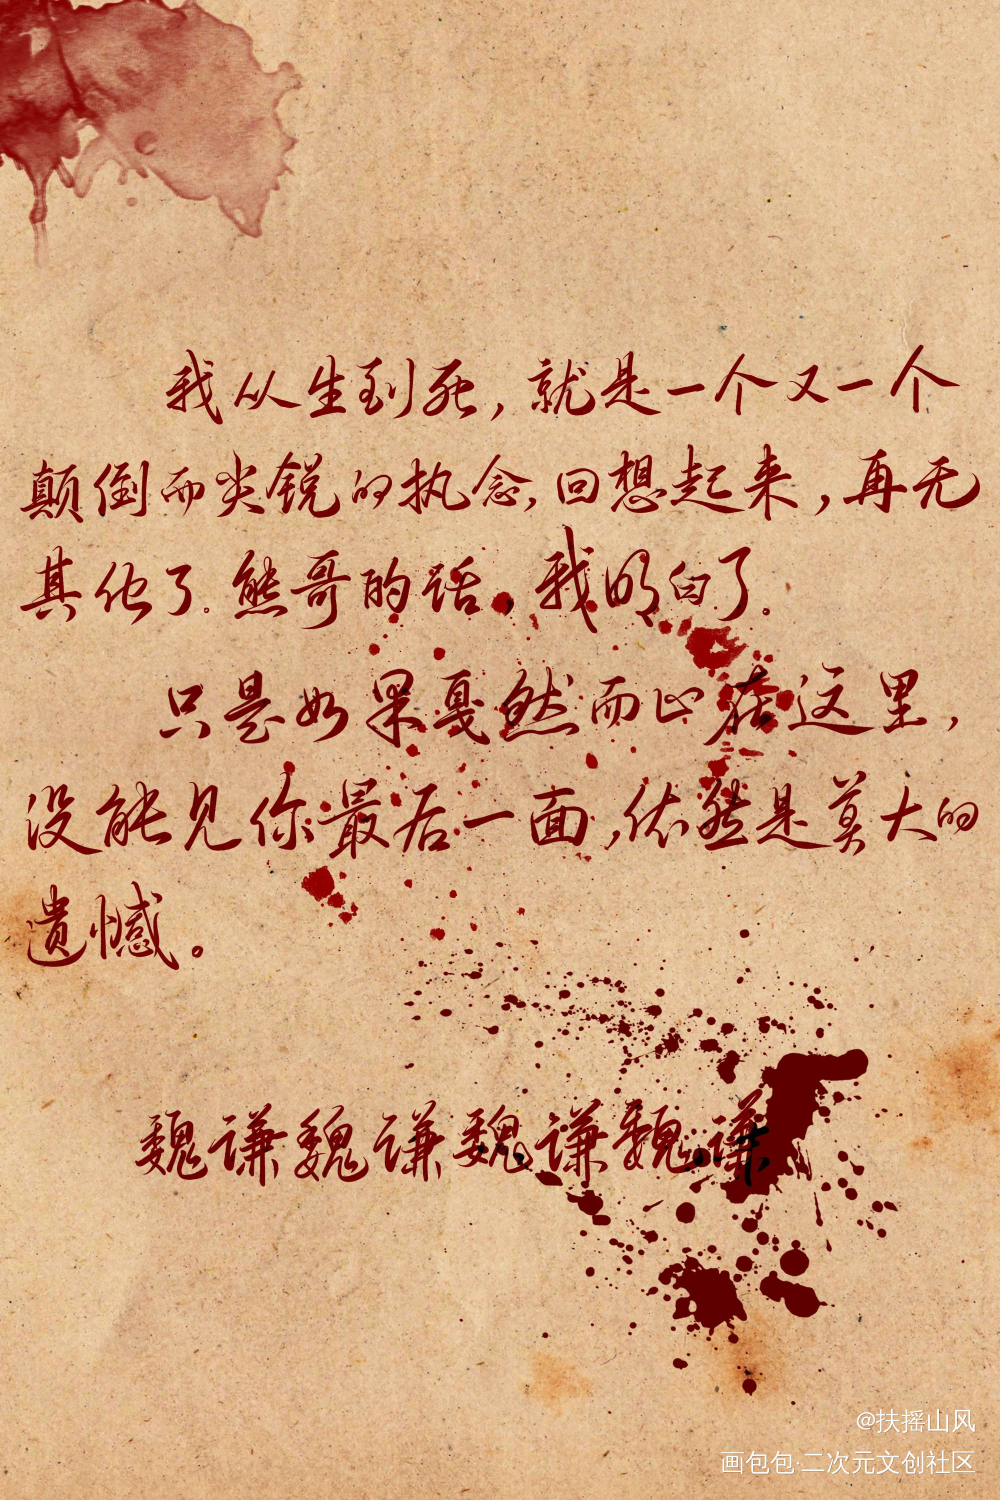 我从生到死，就是一个又一个
颠倒而尖锐的执念，回想起来，再无
其他了。熊哥的话，我明白了。
只是如果戛然而止在这里，
没能见你最后一面，依然是莫大的
遗憾。
魏谦魏谦魏谦魏谦
@扶摇山风
画包包·二次元文创社区